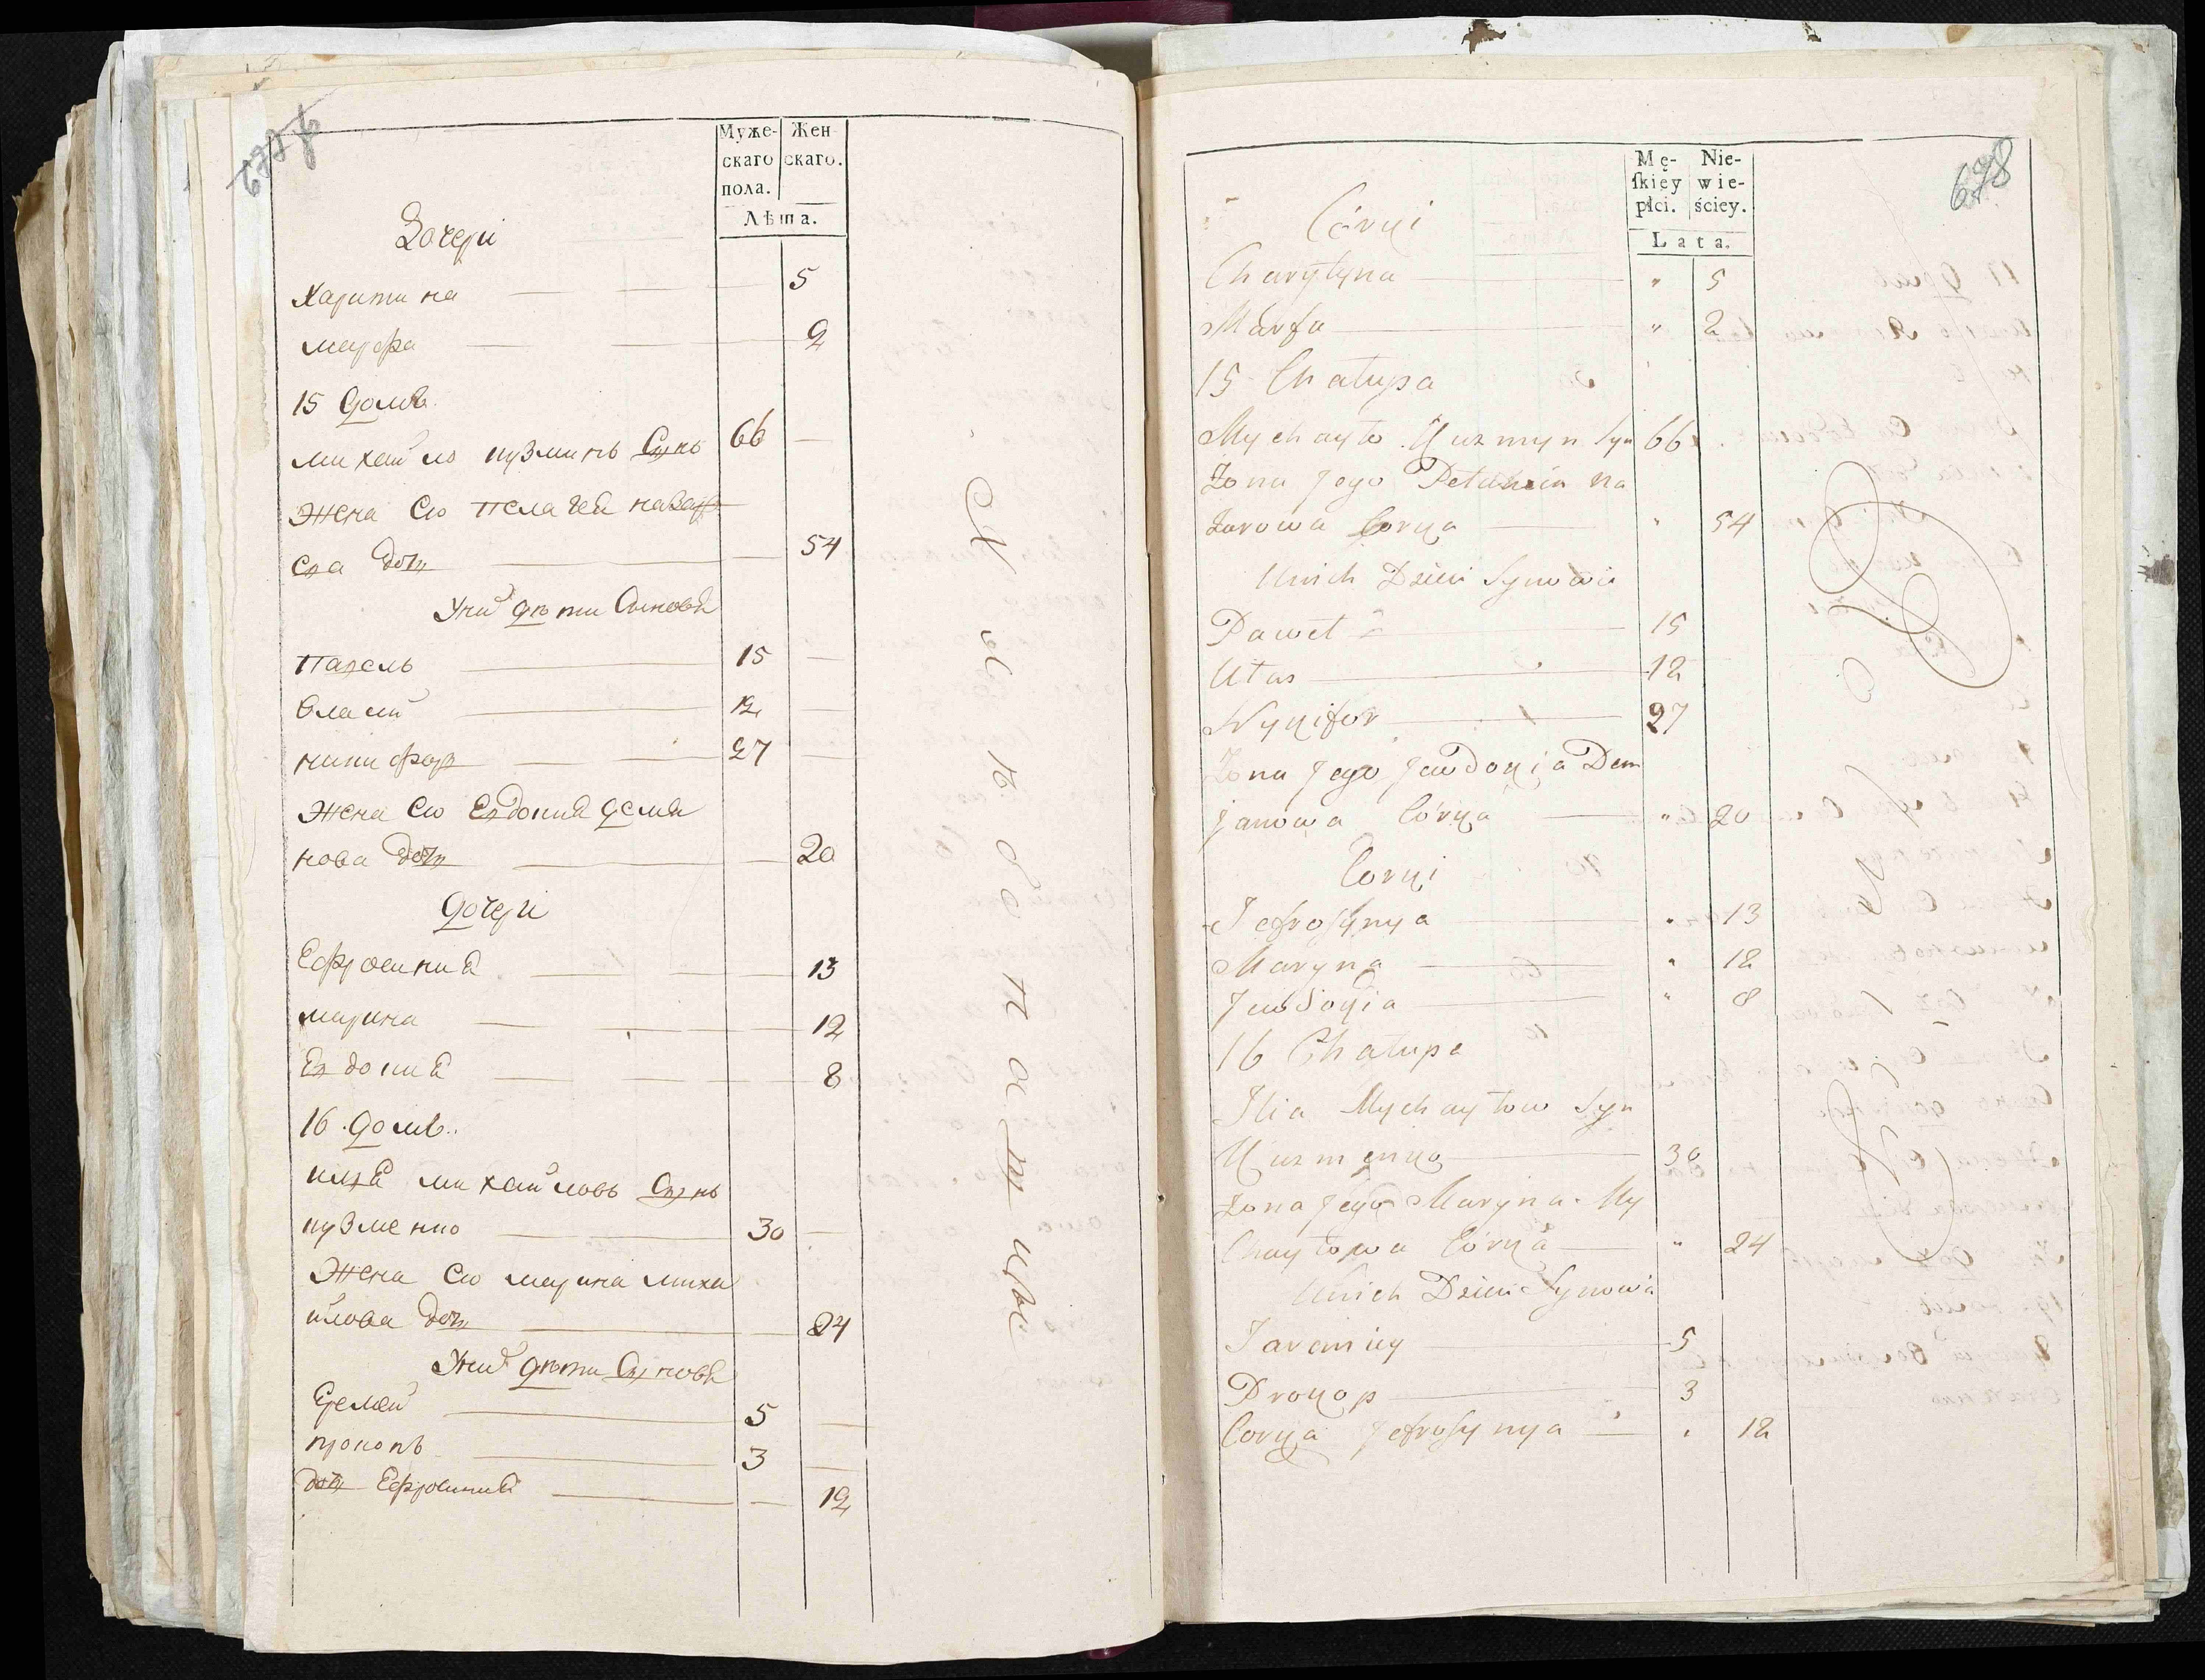 677 об
Муже-
скаго
пола.
Жен
скаго.
Лѣта.
Дочери
Харитина 5
марфа 2
15 домъ
михайло кузминъ Сынъ 66
Жена Ево пелагея назар
ева дочь 54
У них дѣти Сыновя
павель 15
Власий 12
никифор 27
Жена Ево Евдокия демя
нова дочь 20
дочери
Ефросиния 13
марина 12
Евдокия 8
16 домъ
илия михайловъ Сынъ
кузменко 30
Жена Ево марина миха
йлова дочь 24
У них дѣти Сыновя
Еремей 5
прокопъ 3
дочь Ефросиния 12
678
Mę-
skięy
płci.
Nie-
wie-
ściey.
Lata.
Córki
Charytyna " 5
Marfa " 2
15 Chałupa
Mychayło Kuzmyn Syn 66
Żona Jego Pelahia Na
zarowa Córka " 54
Unich Dzieci Synowie
Paweł 15
Ułas 12
Nykifor 27
Żona Jego Jewdokia Dem
janowa Córka " 20
Corki
Jefrosynya " 13
Maryna " 12
Jewdokia " 8
16 Chałupa
Ilia Mychayłow Syn
Kuzmenko 30
Żona Jego Maryna My
chayłowa Córka " 24
Unich Dzieci Synowie
Jaremiey 5
Prokop 3
Corka Jefrosynya " 12